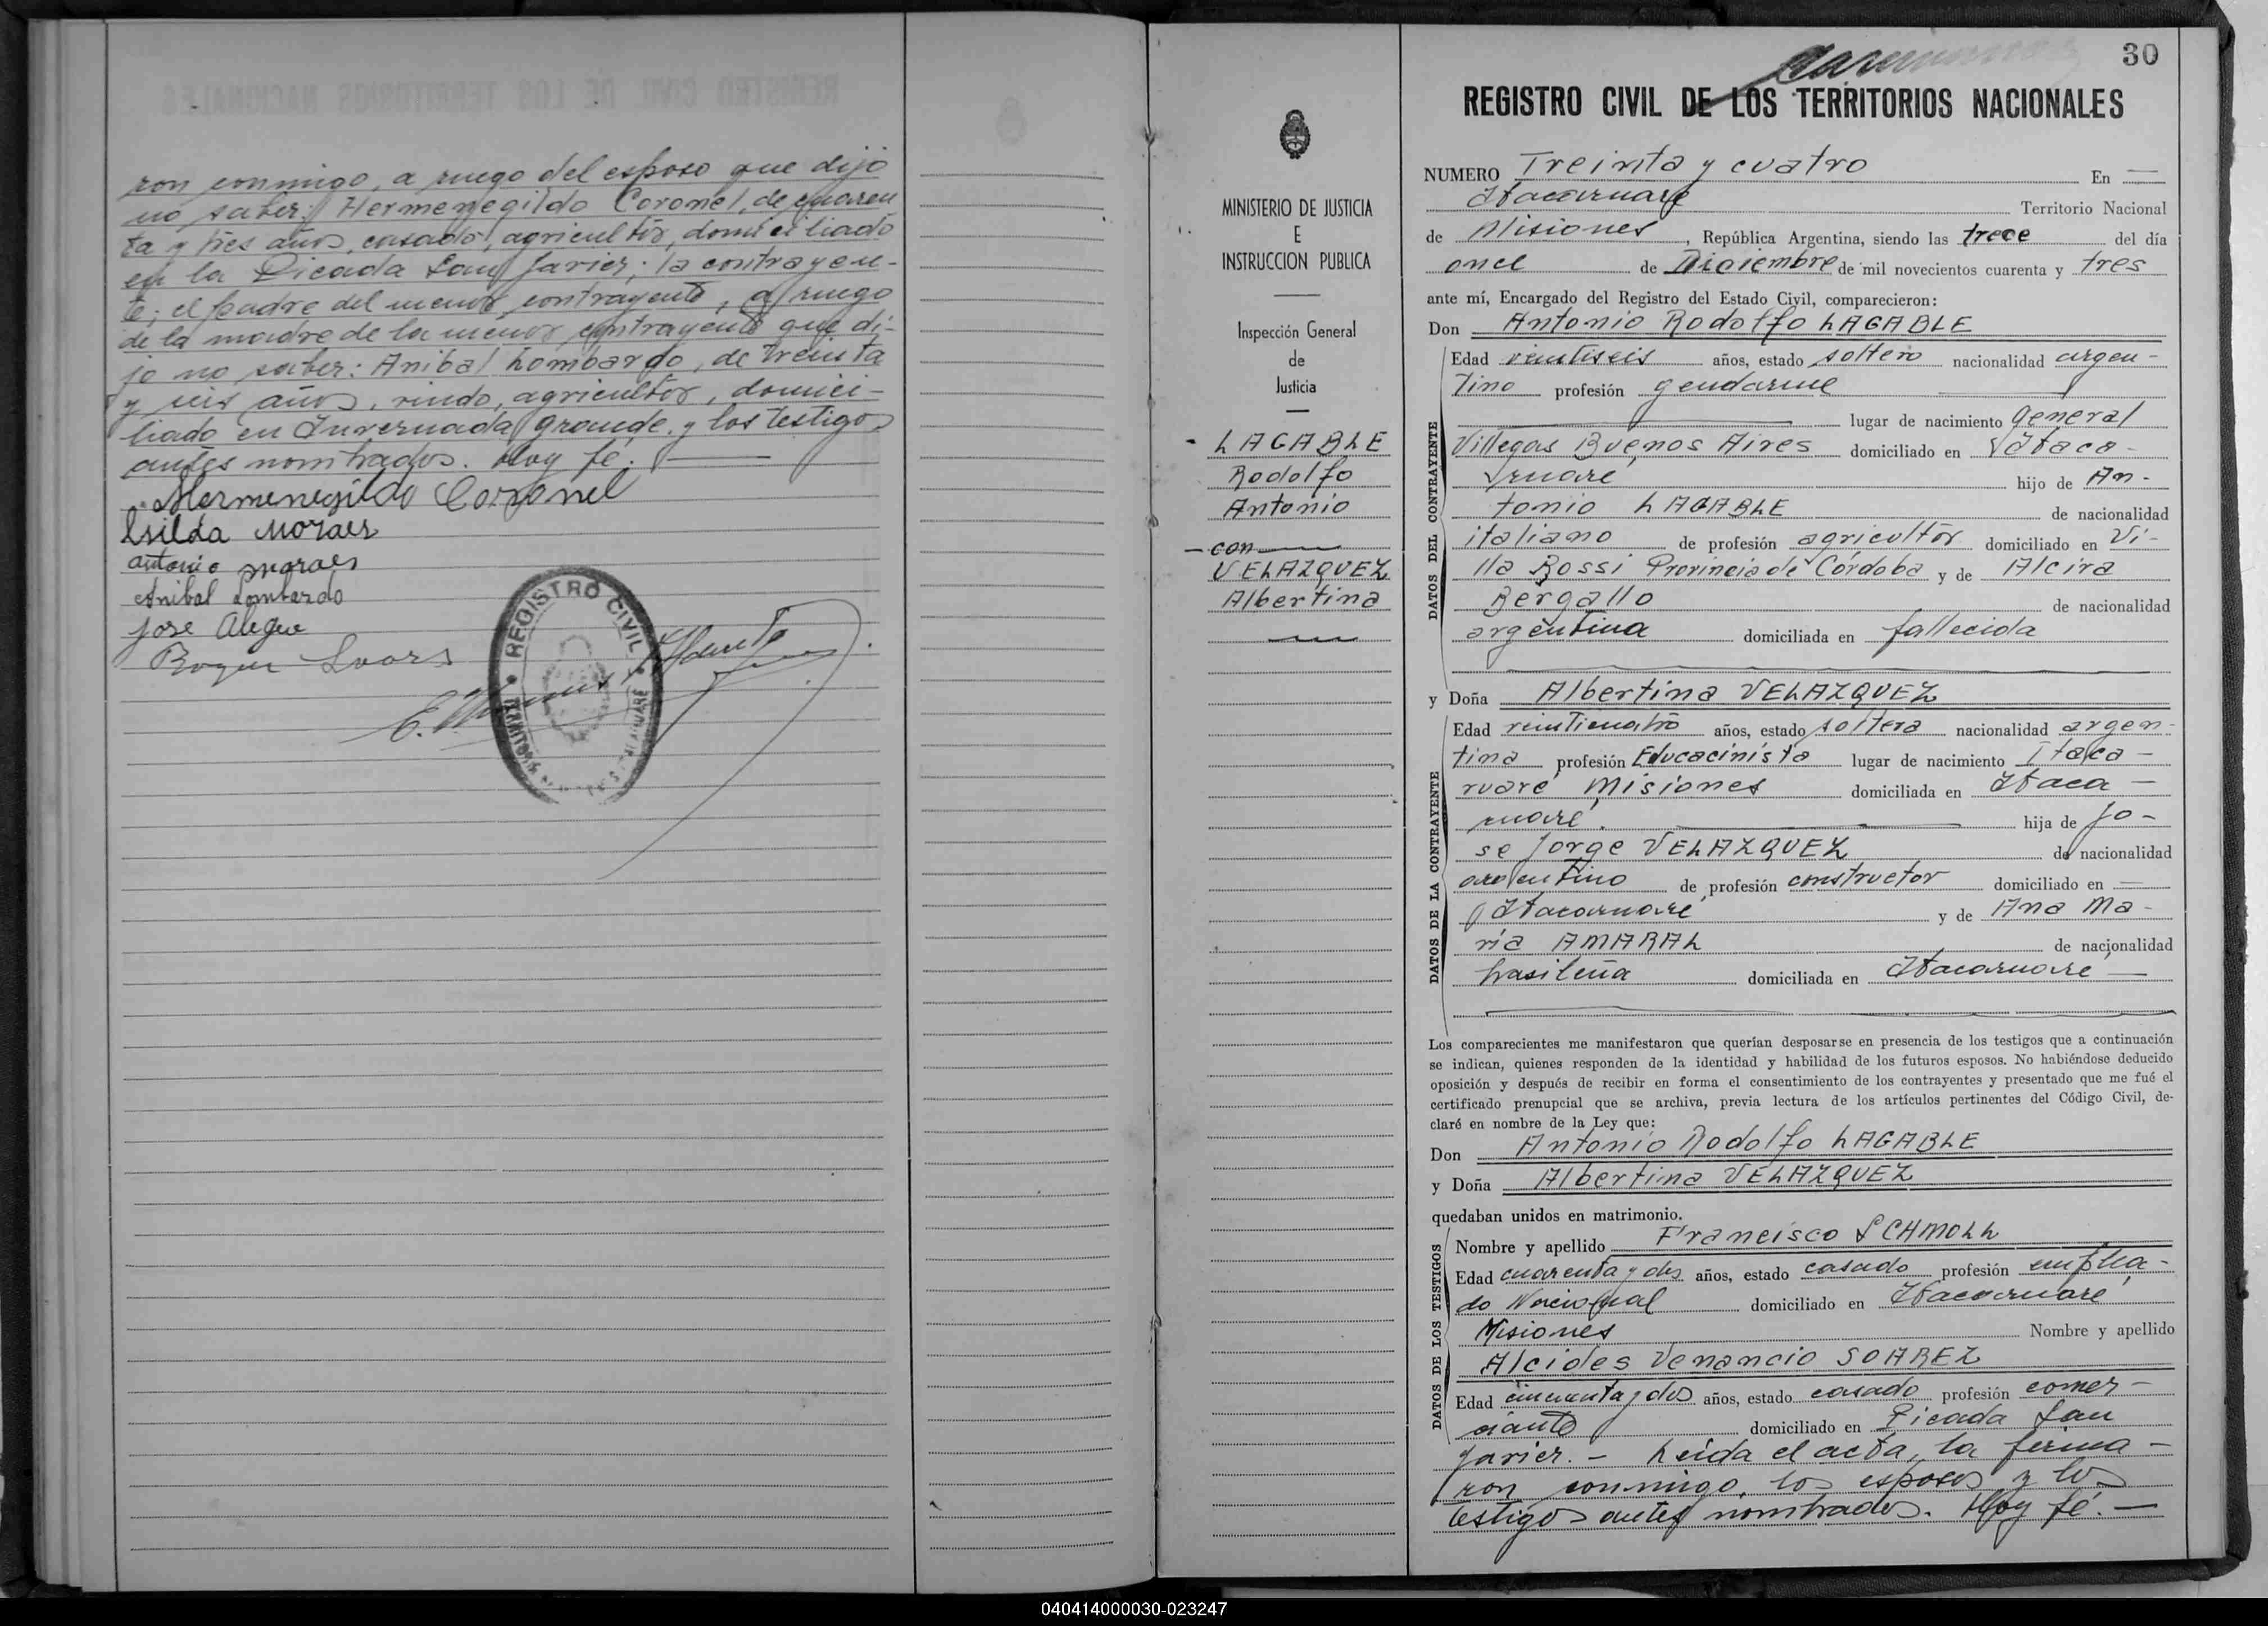 ron conmigo, a ruego del esposo que dijo
no saber: Hermenegildo Coronel, de cuaren
ta y tres años, casado, agricultor, domiciliado
en la Picada San Javier; la contrayen-
te; el padre del menor contrayente, a ruego
de la madre de la menor contrayente que di-
jo no saber: Anibal Lombardo, de treinta
y seis años, viudo, agricultor, domici-
liado en Invernada Grande, y los testigos
antes nombrados. Doy fé.
Hermenegildo Coronel
Isilda Moraes
antonio moraes
Anibal Lombardo
Jose Alegre
Roque
REGISTRO CIVIL
30
REGISTRO CIVIL DE LOS TERRITORIOS NACIONALES
MINISTERIO DE JUSTICIA
E
INSTRUCCION PUBLICA
Inspección General
de
Justicia
LAGABLE
Rodolfo
Antonio
con
VELAZQUEZ
Albertina
NUMERO Treinta y cuatro En
Itacaruaré Territorio Nacional
de Misiones, República Argentina, siendo las trece del día
once de Diciembre de mil novecientos cuarenta y tres
ante mí, Encargado del Registro del Estado Civil, comparecieron:
Don Antonio Rodolfo LAGABLE
DATOS DEL CONTRAYENTE
Edad veintiseis años, estado soltero nacionalidad argen-
tino profesión gendarme
lugar de nacimiento General
Villegas Buenos Aires domiciliado en Itaca-
ruaré hijo de An-
tonio LAGABLE de nacionalidad
italiano de profesión agricultor domiciliado en Vi-
lla Rossi Provincia de Córdoba y de Alcira
Bergallo de nacionalidad
argentina domiciliada en fallecida
y Doña Albertina VELAZQUEZ
DATOS DE LA CONTRAYENTE
Edad veinticuatro años, estado soltera nacionalidad argen-
tina profesión Educacinista lugar de nacimiento Itaca-
ruaré Misiones domiciliada en Itaca-
ruaré. hija de Jo-
se Jorge VELAZQUEZ de nacionalidad
argentino de profesión constructor domiciliado en
Itacaruaré y de Ana Ma-
ria AMARAL de nacionalidad
brasileña domiciliada en Itacaruaré
Los comparecientes me manifestaron que querían desposarse en presencia de los testigos que a continuación
se indican, quienes responden de la identidad y habilidad de los futuros esposos. No habiéndose deducido
oposición y después de recibir en forma el consentimiento de los contrayentes y presentado que me fué el
certificado prenupcial que se archiva, previa lectura de los artículos pertinentes del Código Civil, de-
claré en nombre de la Ley que:
Don Antonio Rodolfo LAGABLE
y Doña Albertina VELAZQUEZ
quedaban unidos en matrimonio.
DATOS DE LOS TESTIGOS
Nombre y apellido Francisco SCHMOLL
Edad cuarenta y dos años, estado casado profesión emplea-
do Nacional domiciliado en Itacaruaré
Misiones Nombre y apellido
Alcides Venancio SOAREZ
Edad cincuenta y dos años, estado casado profesión comer-
ciante domiciliado en Picada San
Javier.- Leida el acta, la firma-
ron conmigo, los esposos y los
testigos antes nombrados. Doy fé.-
040414000030-023247